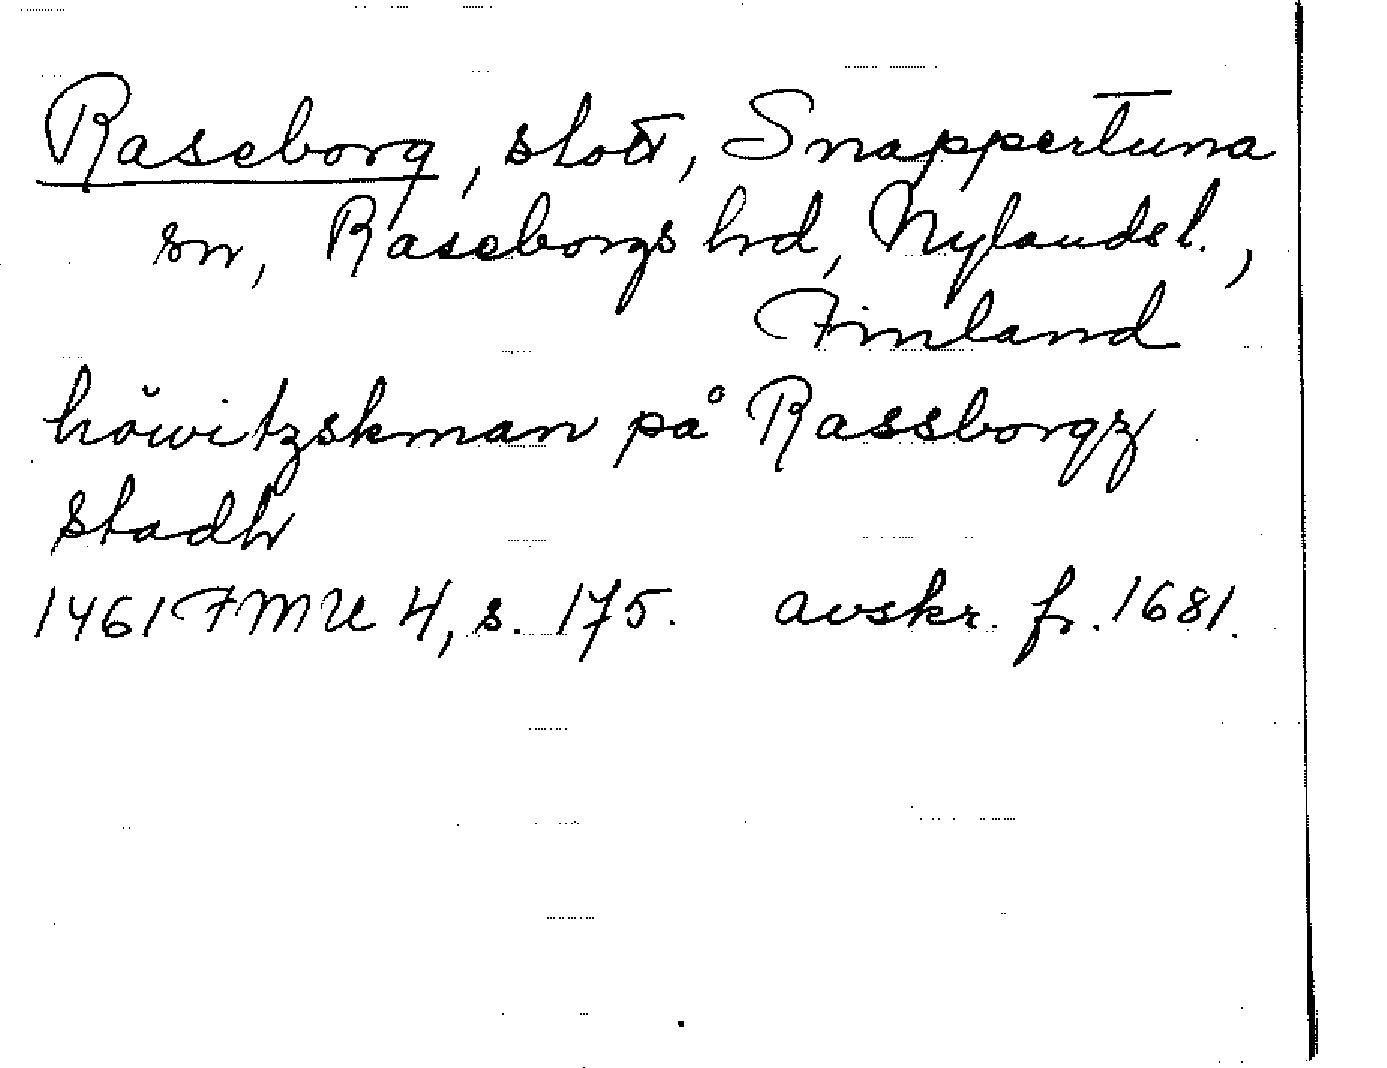 Raseborg, slott, Snappertuna
sn, Raseborgs hrd, Nylands l.,
Finland
höwitzskman på Rassborgz
stadh
1461 FMU 4, s. 175. avskr. fr. 1681.